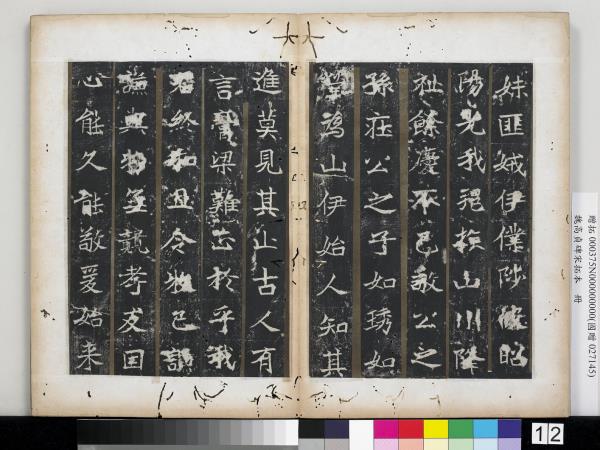 妹匪娥伊僕陟昭
陽光我族山川降
祉餘慶不已敬公之
孫莊公之子如琇如
瑩為山伊始人知其
進莫見其止古人有
言膏梁難正於乎我
君終和且令己謙
謙與物無競孝友因
心能久能敬爰始来
贈拓 000375N000000000(國贈 027145)
魏高貞碑宋拓本 冊
12